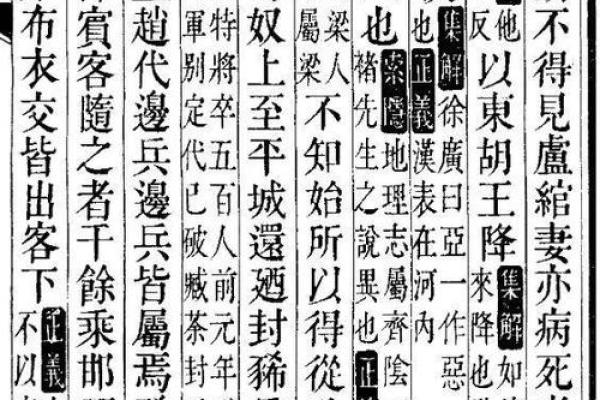 不得見盧綰妻亦病死
他
反
以東胡王降
集解如
來降也
集解徐廣曰亞一作惡
也正義漢表在河內
也
索隱地理志屬齊陰
褚先生之說異也正
梁人
屬梁
不知始所以得從
奴上至平城還迺封豨
特將卒五百人前元年
軍别定代已破臧荼封
趙代邊兵邊兵皆屬焉
賓客隨之者千餘乘邯
布衣交皆出客下
正義
不以